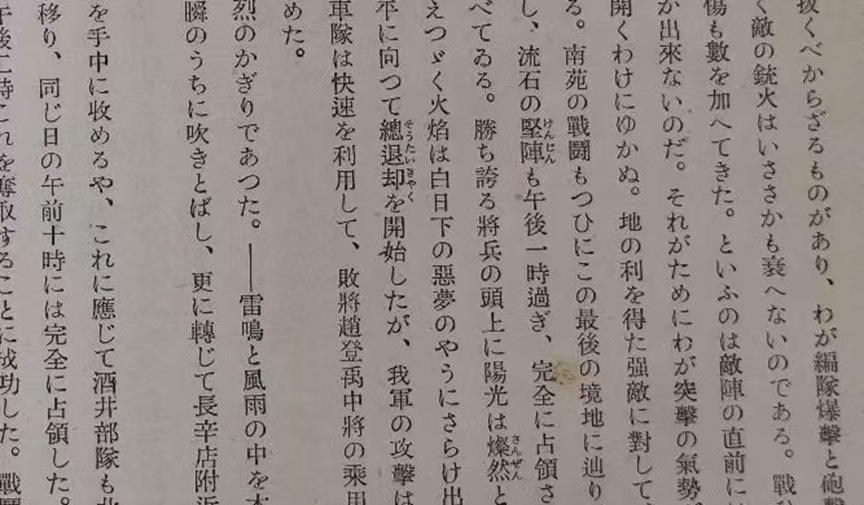 抜くべからざるものがあり、わが編隊爆撃と砲撃
く敵の銃火はいささかも衰へないのである。戰
傷も數を加へてきた。といふのは敵陣の直前に
か出來ないのだ。それがためにわが突撃の氣勢
開くわけにゆかぬ。地の利を得た强敵に對して、
る。南苑の戰鬪もつひにこの最後の境地に辿り
し、流石の堅陣も午後一時過ぎ、完全に占領さ
べてゐる。勝ち誇る將兵の頭上に陽光は燦然と
えつゞく火焰は白日下の惡夢のやうにさらけ出
平に向つて總退却を開始したが、我軍の攻擊は
車隊は快速を利用して、敗將趙登禹中將の乘用
めた。
烈のかぎりであつた。――雷鳴と風雨の中を
瞬のうちに吹きとばし、更に轉じて長辛店附近
を手中に收めるや、これに應じて酒井部隊も北
移り、同じ日の午前十時には完全に占領した。
午後二時これを奪取することに成功した。戰鬪